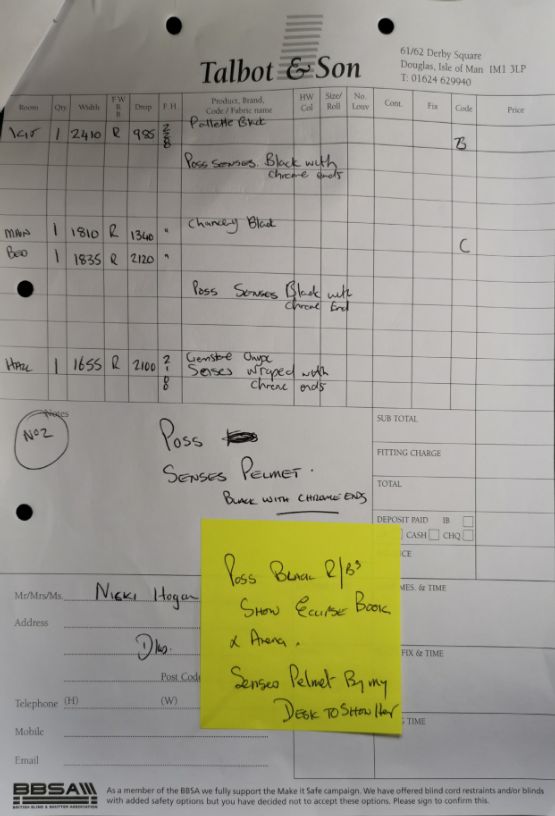 Talbot & Son
61/62 Derby Square
Douglas, Isle of Man IM1 3LP
T: 01624 629940
Room Qty Width F W R B Drop F. H. Product, Brand, Code / Fabric name HW Col Size/ Roll No. Louv Cont. Fix Code Price
1 2410 R 985 Pallette Black
B
Poss Senses. Black with
chrome ends
MAIN 1 1810 R 1340 " Chancery Black
BED 1 1835 R 2120 " C
Poss Senses Black with
Chrome End
HALL 1 1655 R 2100 Gemstone Onyx
Senses wraped with
Chrome ends
Notes
No2
SUB TOTAL
Poss
FITTING CHARGE
SENSES PELMET.
TOTAL
BLACK WITH CHROME ENDS
DEPOSIT PAID IB
CASH CHQ
NCE
Poss Black R/Bs
MES. & TIME
Mr/Mrs/Ms. Nicki Hogan
Show Eclipse Book
Address
& Arena.
FIX & TIME
Post Code
Senses Pelmet By my
Telephone (H) (W)
Desk to Show Her
TIME
Mobile
Email
BBSA
BRITISH BLIND & SHUTTER ASSOCIATION
As a member of the BBSA we fully support the Make it Safe campaign. We have offered blind cord restraints and/or blinds
with added safety options but you have decided not to accept these options. Please sign to confirm this.